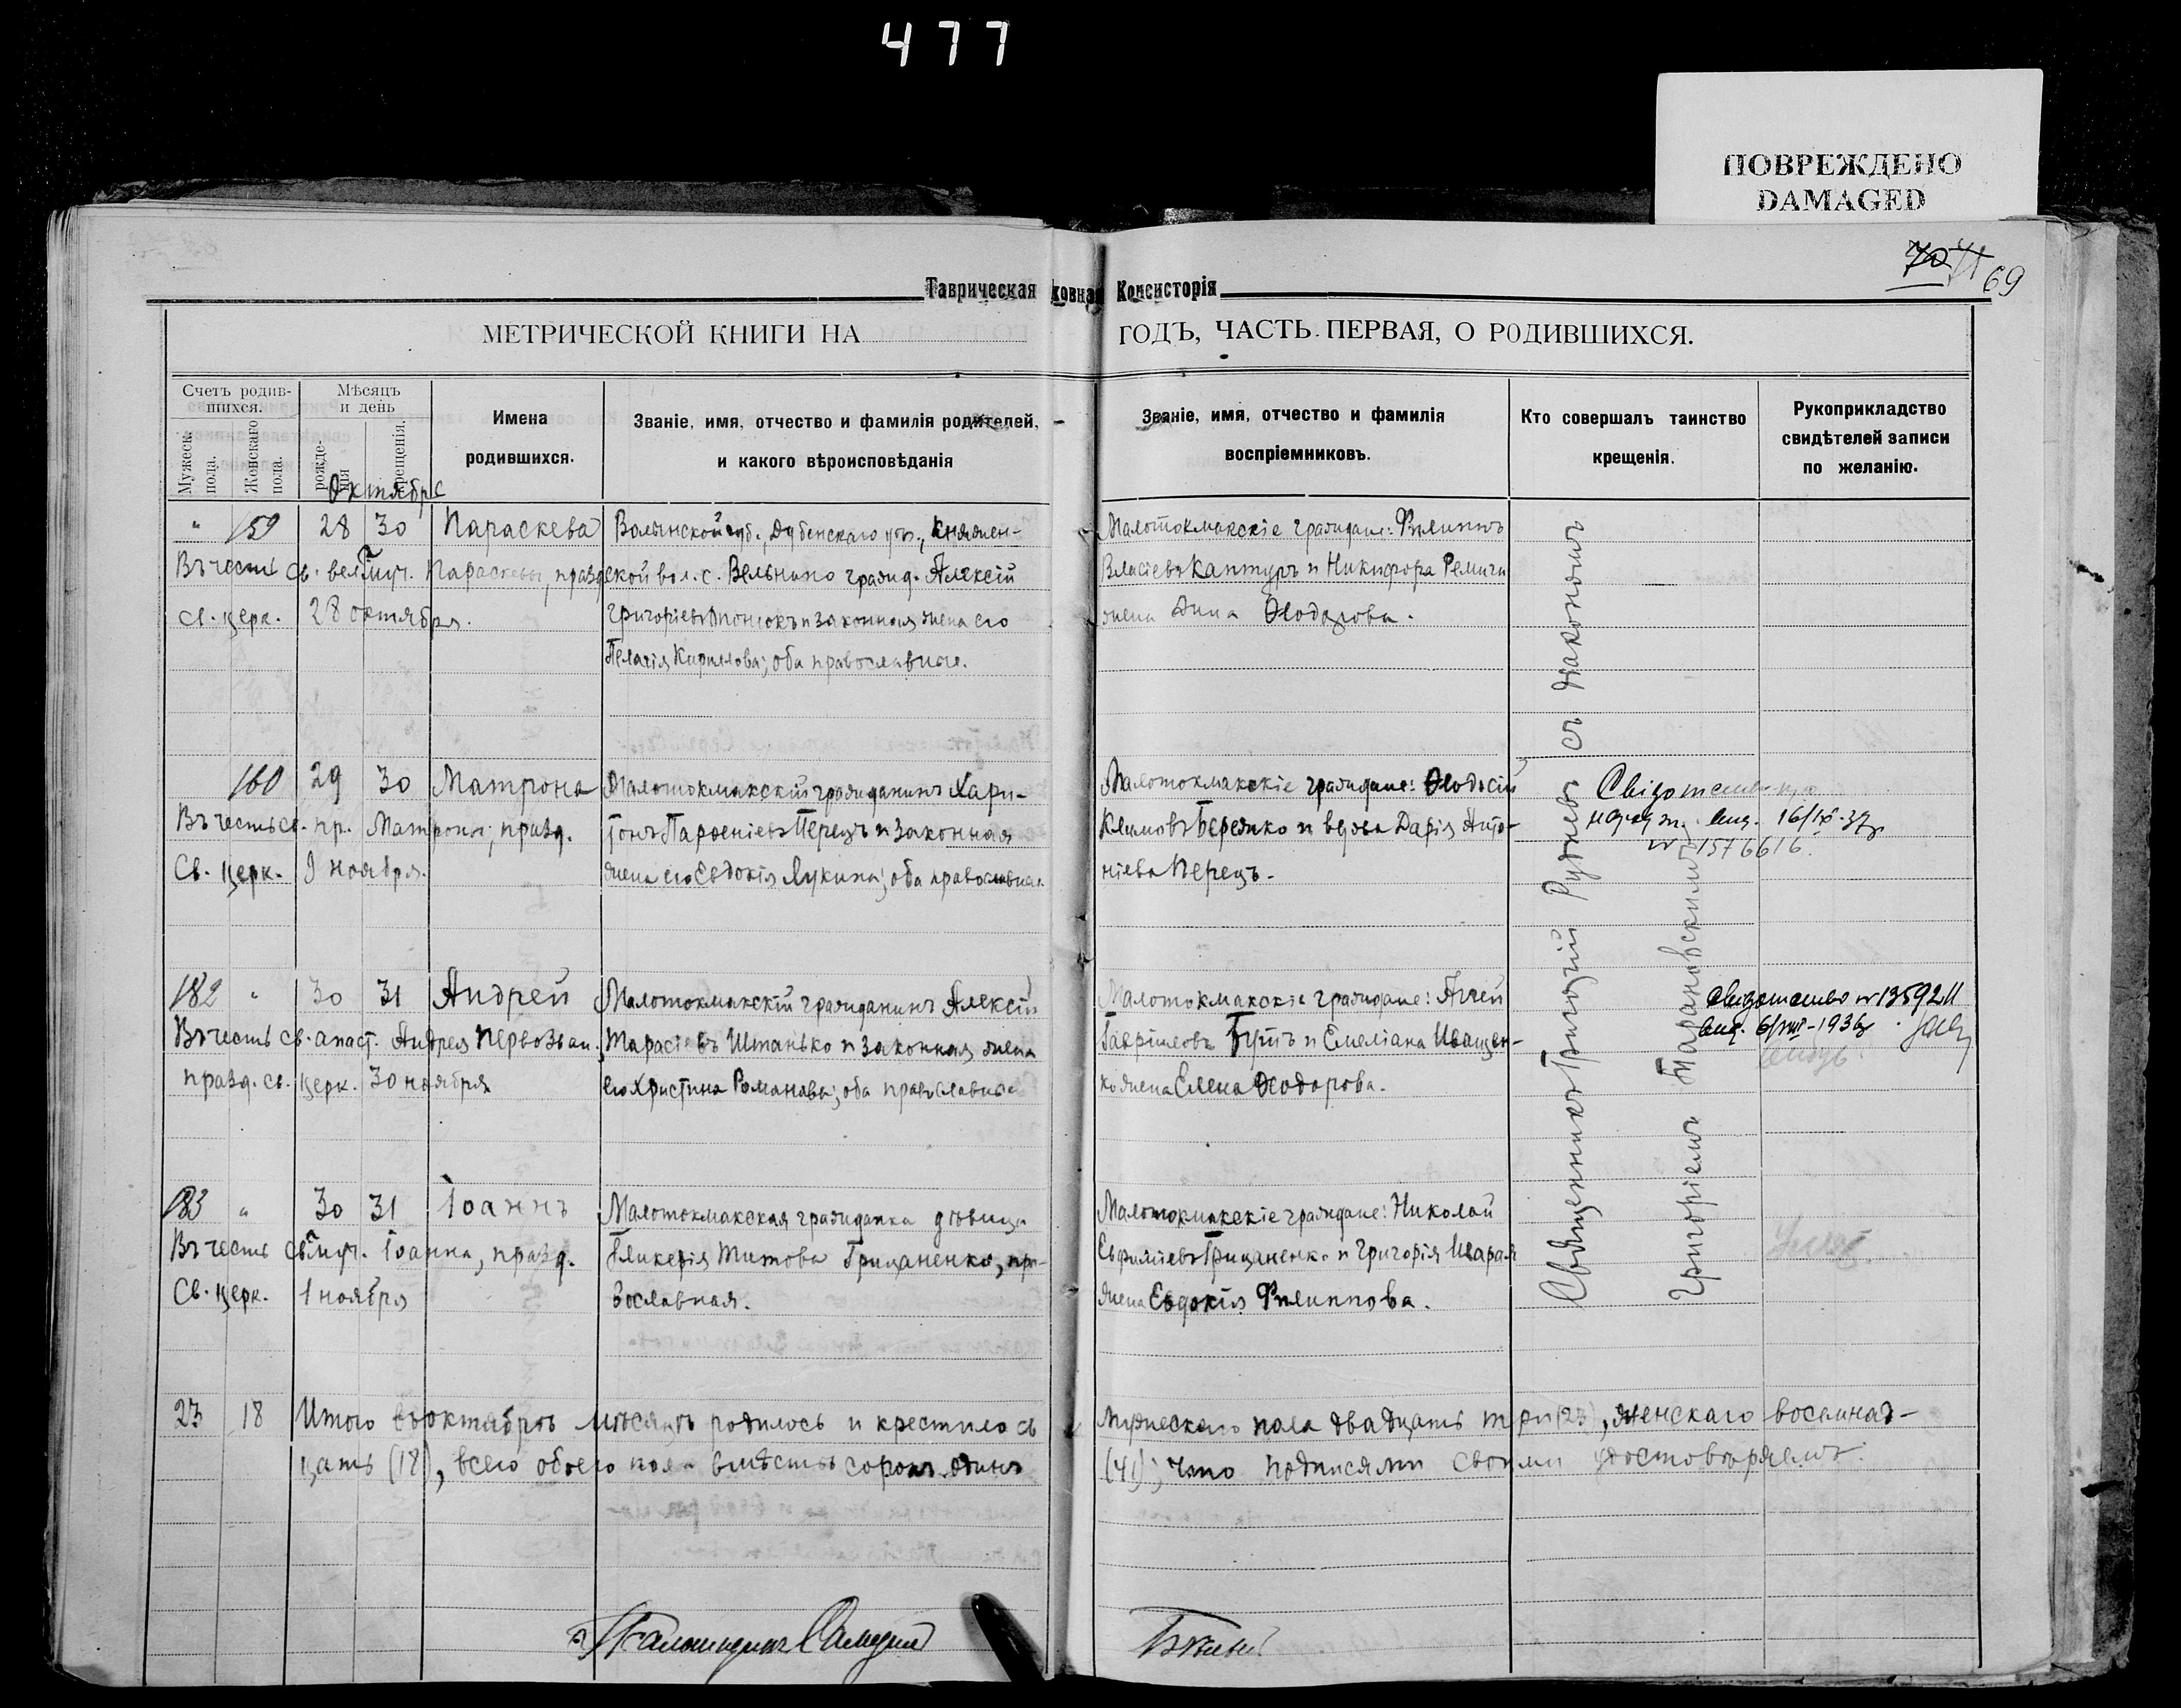 477
ПОВРЕЖДЕНО
DAMAGED
70 71 69
Таврическая ховная Консисторія
МЕТРИЧЕСКОЙ КНИГИ НА ГОДЪ, ЧАСТЬ ПЕРВАЯ, О РОДИВШИХСЯ.
Счетъ родив-
шихся.
Мужеск. пола.
Женскаго пола.
Мѣсяцъ
и день
рожде-
нія
крещенія.
Имена
родившихся.
Званіе, имя, отчество и фамилія родителей,
и какого вѣроисповѣданія
Званіе, имя, отчество и фамилія
воспріемниковъ.
Кто совершалъ таинство
крещенія.
Рукоприкладство
свидѣтелей записи
по желанію.
Октябрь
" 159 28 30 Параскева
Въ честь св. вел. муч. Параскевы, празд.
св. церк. 28 октября.
Волынской губ., Дубенскаго уѣз., Княжен-
ской вол. с. Вельнино гражд. Алексій
Григоріевъ и законная жена его
Пелагія Кириллова; оба православные.
Малотокмакскіе граждане: Филиппъ
Власіевъ Каптуръ и Никифора
жена Анна Ѳеодорова.
160 29 30 Матрона
Въ честь св. пр. Матроны; празд.
Св. церк. 9 ноября.
Малотокмакскій гражданинъ Хари-
тонъ Парѳеніевъ Перецъ и законная
жена его Евдокія Лукина; оба православные.
Малотокмакскіе граждане: Ѳеодосій
Климовъ Бережко и вдова Дарія Анто-
ніева Перецъ.
16/IX-37р.
№ 1576616.
182 " 30 31 Андрей
Въ честь св. апост. Андрея Первозван.
празд. св. церк. 30 ноября
Малотокмакскій гражданинъ Алексій
Тарасіевъ Штанько и законная жена
его Христина Романова; оба православные
Малотокмакскіе граждане:
Гавріиловъ и Емеліана Иващен-
ко жена Елена Ѳеодорова.
Свідотство № 13592
вид. 6/VIII-1936р.
183 " 30 31 Іоаннъ
Въ честь св. муч. Іоанна, празд.
Св. церк. 1 ноября
Малотокмакская гражданка дѣвица
Гликерія Титова Грицаненко, пра-
вославная.
Малотокмакскіе граждане: Николай
Евфиміевъ Грицаненко и Григорія
жена Евдокія Филиппова.
Священникъ Григорій Рудневъ съ діакономъ
Григоріемъ Тарановскимъ
23 18 Итого въ октябрѣ мѣсяцѣ родилось и крестилось мужескаго пола двадцать три (23), женскаго восемнад-
цать (18), всего обоего пола вмѣстѣ сорокъ одинъ (41); что подписями своими удостовѣряемъ.